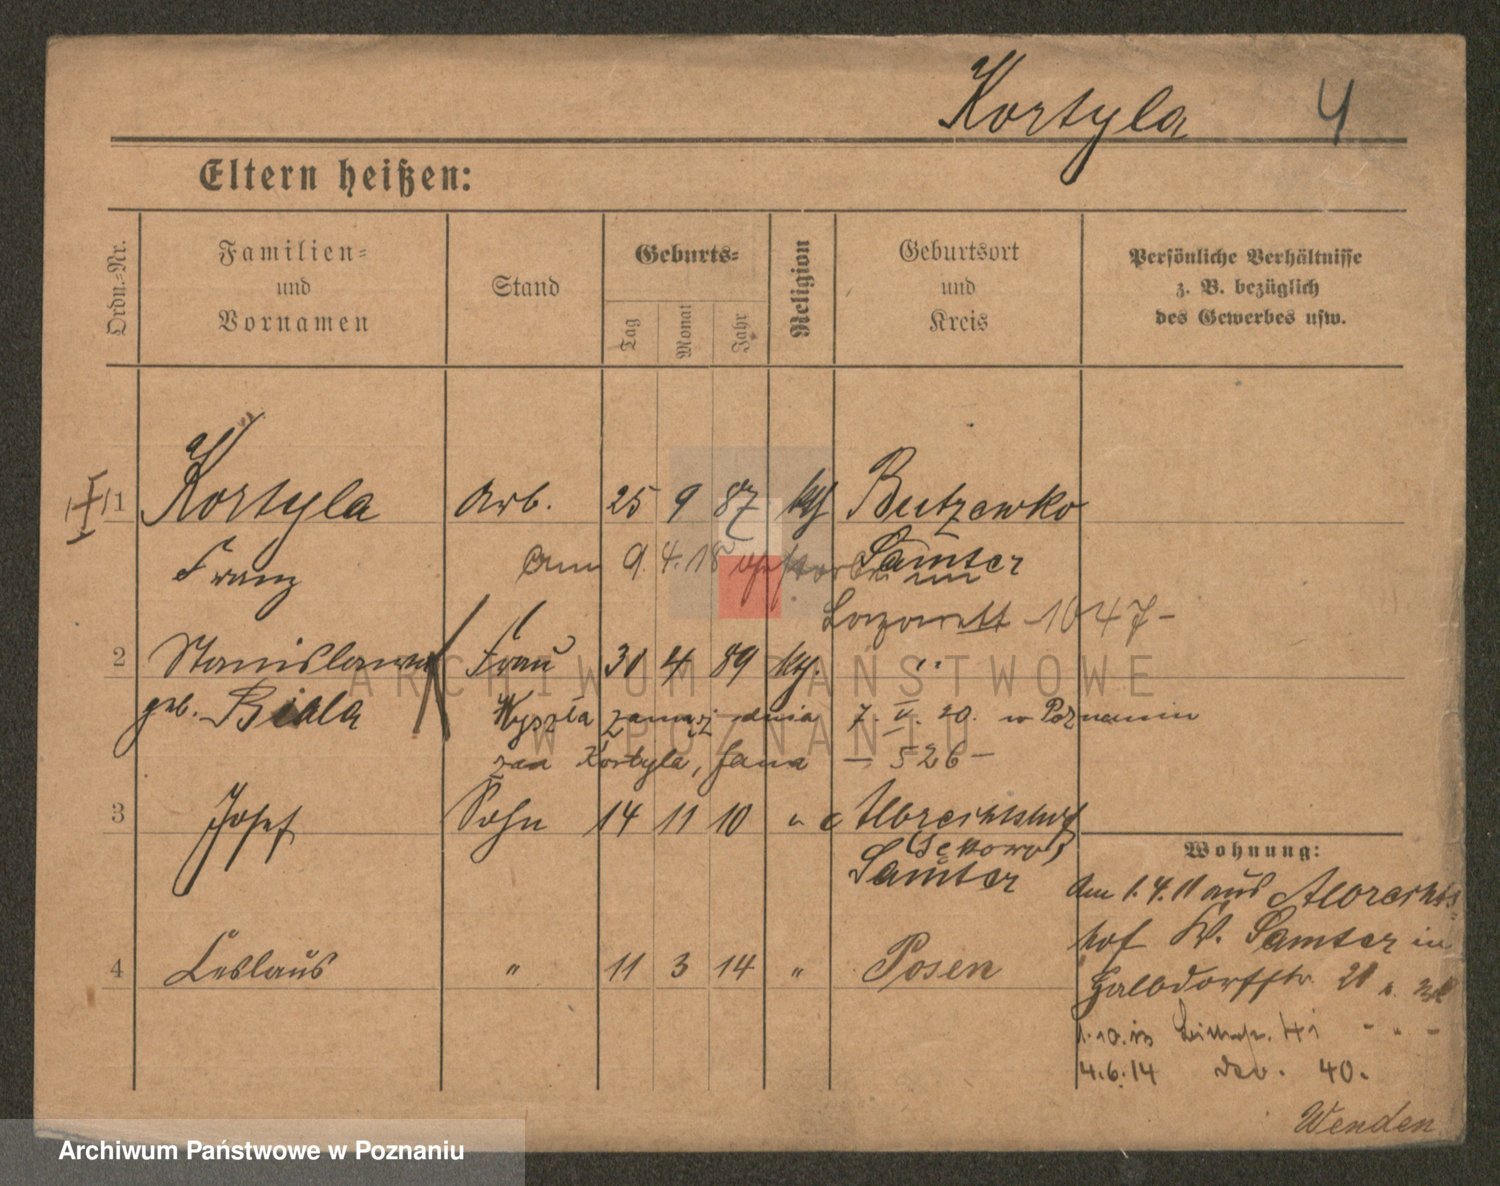 Kortyla 4
Eltern heißen:
Ordn.-Nr.
Familien-
und
Vornamen
Stand
Geburts-
Tag
Monat
Jahr
Religion
Geburtsort
und
Kreis
Persönliche Verhältnisse
z. B. bezüglich
des Gewerbes usw.
1 Kortyla Arb. 25 9 87 kth Butzewko
Franz Samter
Am 9.4.18 gestorben im
Lazarett 1047-
2 Stanislawa Frau 30 4 89 kth. "
geb. Biala
Wyszła zamąż dnia 7.V.20. w Poznaniu
zaa Kortyla, Jana — 526 —
3 Josef Sohn 14 11 10 " Albrechtshof
(Sękowo)
Samter
4 Leslaus " 11 3 14 " Posen
Wohnung:
Am 1.4.11 aus Albrechts-
hof Kr. Samter in
Halbdorfstr. 21
1.10.13 41 - " -
4.6.14 do. 40.
Wenden
ARCHIWUM PAŃSTWOWE
W POZNANIU
Archiwum Państwowe w Poznaniu